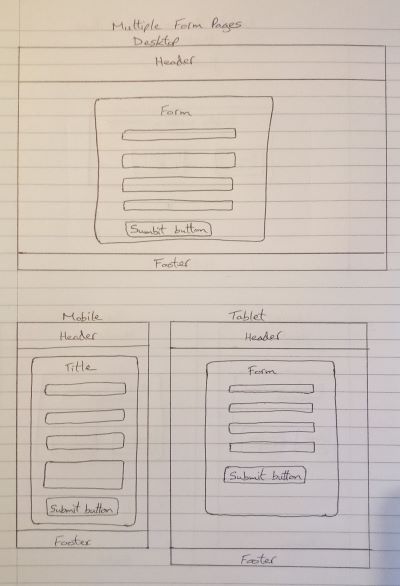 Multiple Form Pages
Desktop
Header
Form
Sumbit button
Footer
Mobile
Header
Title
Submit button
Footer
Tablet
Header
Form
Submit button
Footer